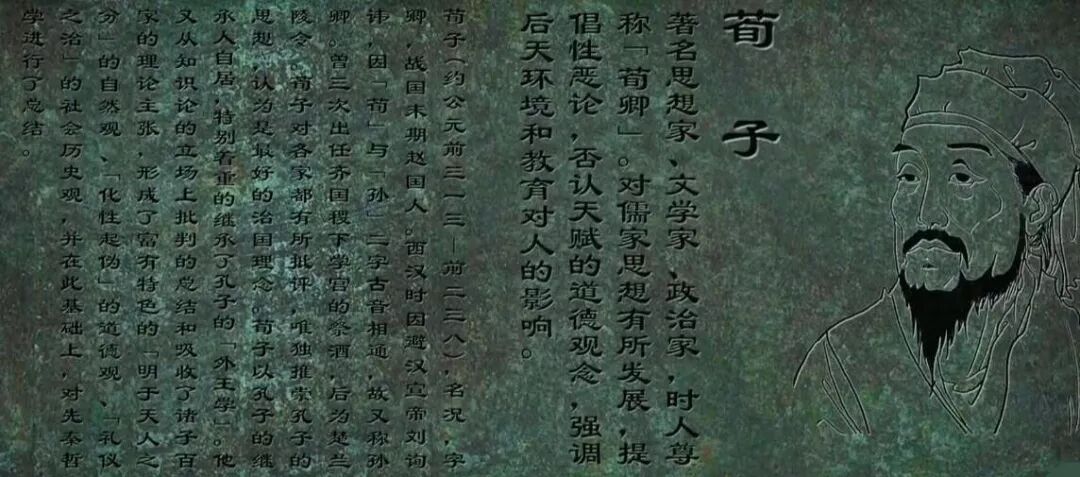 荀子
著名思想家、文学家、政治家，时人尊
称「荀卿」。对儒家思想有所发展，提
倡性恶论，否认天赋的道德观念，强调
后天环境和教育对人的影响。
荀子（约公元前三一三—前二三八），名况，字
卿，战国末期赵国人。西汉时因避汉宣帝刘询
讳，因「荀」与「孙」二字古音相通，故又称孙
卿。曾三次出任齐国稷下学宫的祭酒，后为楚兰
陵令。荀子对各家都有所批评，唯独推崇孔子的
思想，认为是最好的治国理念。荀子以孔子的继
承人自居，特别着重的继承了孔子的「外王学」。他
又从知识论的立场上批判的总结和吸收了诸子百
家的理论主张，形成了富有特色的「明于天人之
分」的自然观、「化性起伪」的道德观、「礼仪
之治」的社会历史观，并在此基础上，对先秦哲
学进行了总结。